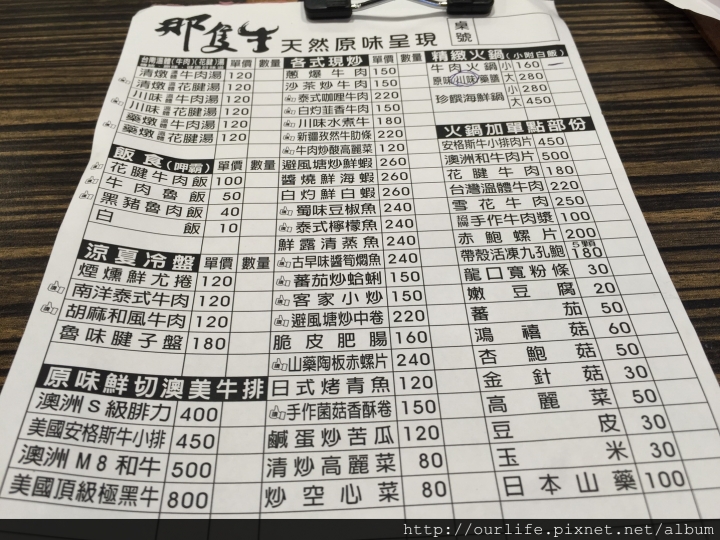 那隻牛 天然原味呈現
桌號
台南溫體(牛肉)(花腱)湯 單價 數量
清燉 牛肉湯 120
清燉 花腱湯 120
川味 牛肉湯 120
川味 花腱湯 120
藥燉 牛肉湯 120
藥燉 花腱湯 120
飯食(呷霸) 單價 數量
花腱牛肉飯 100
牛肉魯飯 50
黑豬魯肉飯 40
白飯 10
涼夏冷盤 單價 數量
煙燻鮮尤捲 120
南洋泰式牛肉 120
胡麻和風牛肉 120
魯味腱子盤 180
原味鮮切澳美牛排
澳洲S級腓力 400
美國安格斯牛小排 450
澳洲M8和牛 500
美國頂級極黑牛 800
各式現炒 單價 數量
蔥爆牛肉 150
沙茶炒牛肉 150
泰式咖哩牛肉 220
白灼韮香牛肉 150
川味水煮牛 180
新疆孜然牛肋條 220
牛肉炒酸高麗菜 120
避風塘炒鮮蝦 260
醬燒鮮海蝦 260
白灼鮮白蝦 260
蜀味豆椒魚 240
泰式檸檬魚 240
鮮露清蒸魚 240
古早味醬筍燜魚 240
蕃茄炒蛤蜊 150
客家小炒 150
避風塘炒中卷 220
脆皮肥腸 160
山藥陶板赤螺片 240
日式烤青魚 120
手作菌菇香酥卷 150
鹹蛋炒苦瓜 120
清炒高麗菜 80
炒空心菜 80
精緻火鍋(小附白飯)
牛肉火鍋 小 160 一
原味 川味 藥膳 大 280
珍饌海鮮鍋 小 280
大 450
火鍋加單點部份
安格斯牛小排肉片 450
澳洲和牛肉片 500
花腱牛肉 180
台灣溫體牛肉 220
雪花牛肉 250
手作牛肉漿 100
赤鮑螺片 200
帶殼活凍九孔鮑 5顆 180
龍口寬粉條 30
嫩豆腐 20
蕃茄 50
鴻禧菇 60
杏鮑菇 50
金針菇 30
高麗菜 50
豆皮 30
玉米 30
日本山藥 100
http://ourlife.pixnet.net/album